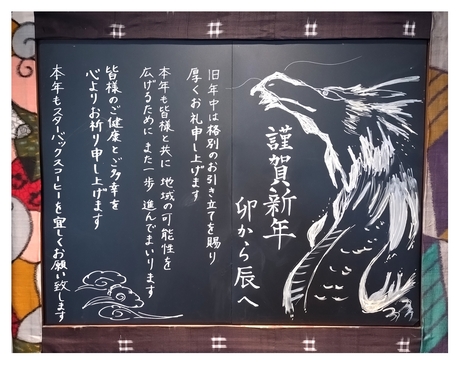 謹賀新年
卯から辰へ
旧年中は格別のお引き立てを賜り
厚くお礼申し上げます
本年も皆様と共に 地域の可能性を
広げるために また一歩 進んでまいります
皆様のご健康とご多幸を
心よりお祈り申し上げます
本年もスターバックスコーヒーを宜しくお願い致します